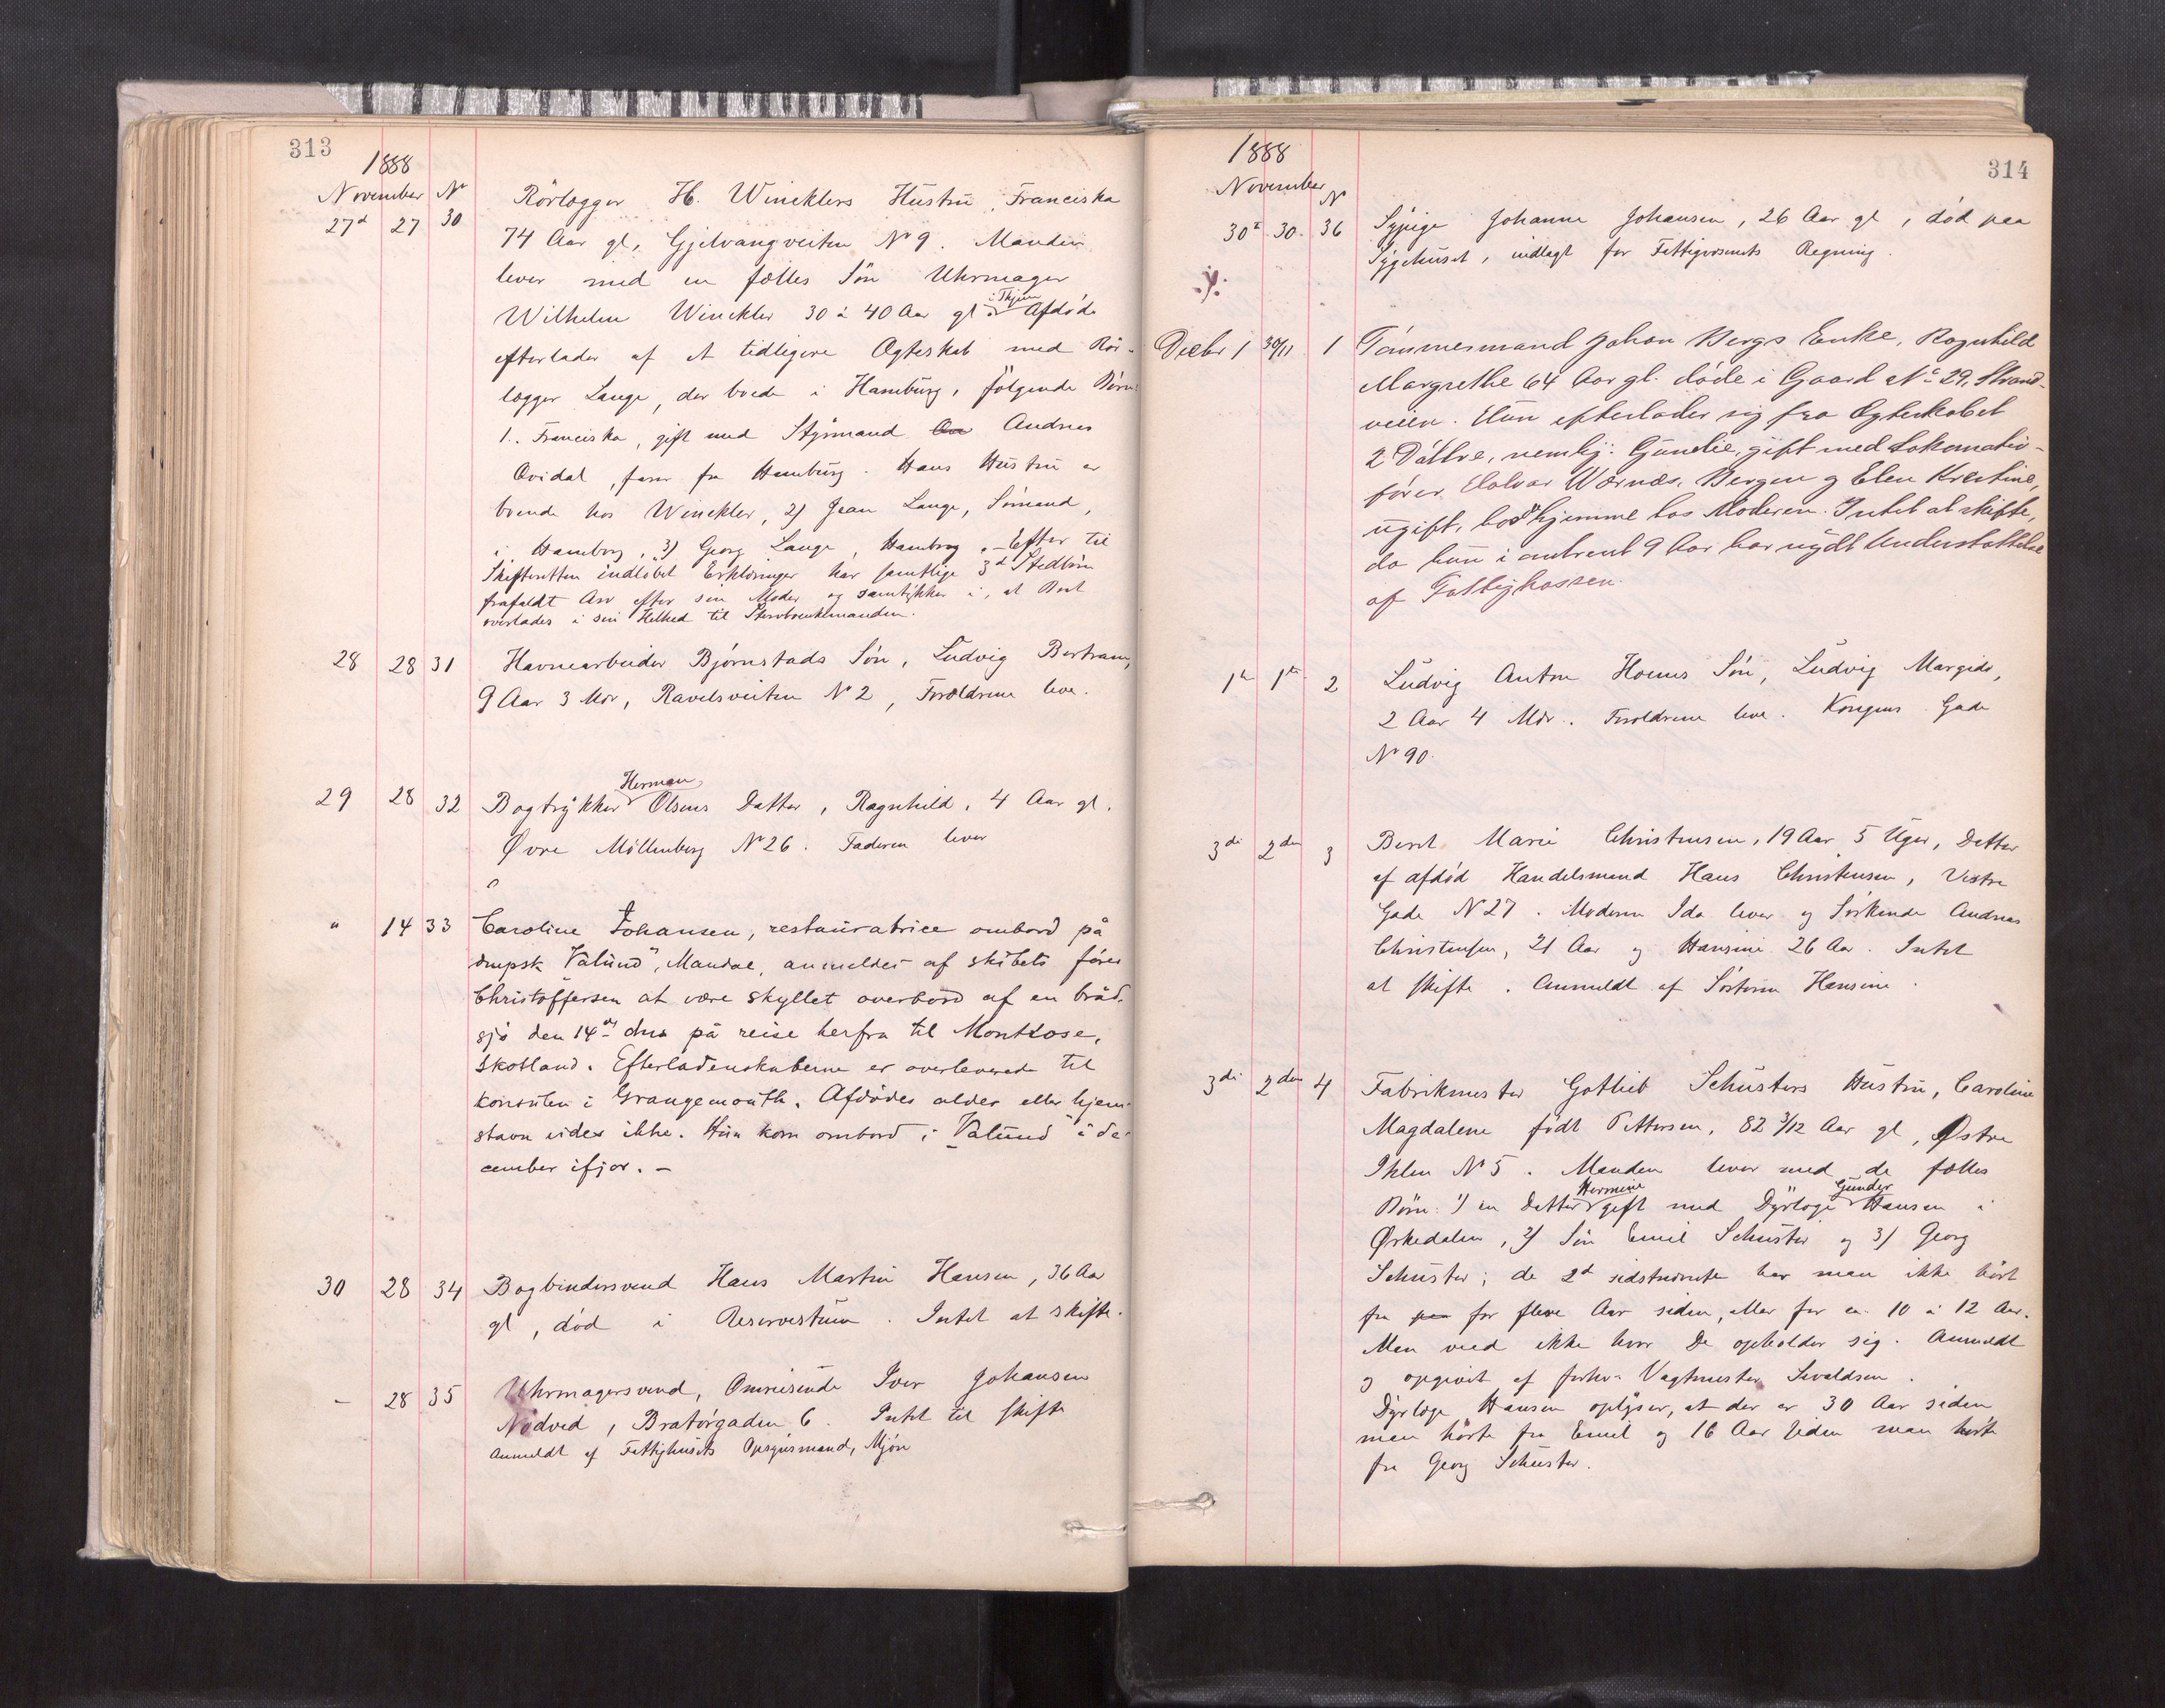 313
1888
November No
27d 27 30 Rörlægger H. Wincklers Hustru, Franciska
74 Aar gl, Gjelvangveiten No 9. Manden
lever med en fælles Sön Uhrmager
Wilhelm Winckler 30 à 40 Aar gl i Thjem Afdöde
efterlader af et tidligere Ægteskab med Rör-
lægger Lange, der boede i Hamburg, fölgende Börn:
1. Franciska, gift med Styrmand Andreas
Qvidal, farer fra Hamburg. Hans Hustru er
boende hos Winckler, 2) Jean Lange, Sömand,
i Hamborg, 3) Georg Lange, Hamborg. - Efter til
Skifteretten indløbet Erklæringer har samtlige 3d Stedbörn
frafaldt Arv efter sin Moder og samtykker i, at Boet
overlades i sin Helhed til Sterboenkemanden.
28 28 31 Havnearbeider Bjørnstads Sön, Ludvig Bertram,
9 Aar 3 Mdr, Ravelsveiten No 2, Forældrene leve.
29 28 32 Bogtrykker Herman Olsens Datter, Ragnhild, 4 Aar gl.
Øvre Möllenberg No 26. Faderen lever
" 14 33 Caroline Johansen, restauratrice ombord på
dmpsk "Valund", Mandal, anmeldes af skibets fører
Christoffersen at være skyllet overbord af en bråd-
sjø den 14de dns på reise herfra til Montrose,
Skotland. Efterladenskaberne er overleverede til
konsulen i Grangemouth. Afdødes alder eller hjem-
stavn vides ikke. Hun kom ombord i "Valund" i de-
cember ifjor. -
30 28 34 Bogbindersvend Hans Martin Hansen, 36 Aar
gl, död i Reservestuen. Intet at skifte.
- 28 35 Uhrmagersvend, Omreisende Iver Johansen
Nödved, Bratörgaden 6. Intet til skifte
Anmeldt af Fattighusets Opsynsmand, Mjön
314
1888
November No
30te 30. 36 Sypige Johanne Johansen, 26 Aar gl, död paa
Sygehuset, indlagt for Fattigvæsenets Regning.
Decbr 1 30/11 1 Tömmermand Johan Bergs Enke, Ragnhild
Margrethe 64 Aar gl. døde i Gaard No 29, Strand-
veien. Hun efterlader sig fra Ægteskabet
2 Döttre, nemlig: Gunelie, gift med Lokomotiv-
fører Halvar Wærnæs, Bergen og Elen Kristine,
ugift, boer hjemme hos Moderen. Intet at skifte,
da hun i omtrent 9 Aar har nydt Understøttelse
af Fattigkassen.
1te 1te 2 Ludvig Anton Hoems Sön, Ludvig Margido,
2 Aar 4 Mdr. Forældrene leve. Kongens Gade
No 90.
3di 2den 3 Beret Marie Christensen, 19 Aar 5 Uger, Datter
af afdöd Handelsmand Hans Christensen, Vestre
Gade No 27. Moderen Ida lever og Söskende Andreas
Christensen, 21 Aar og Hansine 26 Aar. Intet
at skifte. Anmeldt af Söstern Hansine.
3di 2den 4 Fabrikmester Gotlieb Schusters Hustru, Caroline
Magdalene födt Pettersen, 82 3/12 Aar gl, Østre
Ihlen No 5. Manden lever med de fælles
Börn: 1) en Datter Hermine gift med Dyrlæge Gunder Hansen i
Ørkedalen, 2) Sön Emil Schuster og 3) Georg
Schuster; de 2d sidstnævnte har man ikke hört
fra for flere Aar siden, eller for ca. 10 à 12 Aar.
Man veed ikke hvor De opholder sig. Anmeldt
og opgivet af forhv. Vagtmester Sivaldsen.
Dyrlæge Hansen oplyser, at der er 30 Aar siden
man hörte fra Emil og 16 Aar siden man hörte
fra Georg Schuster.